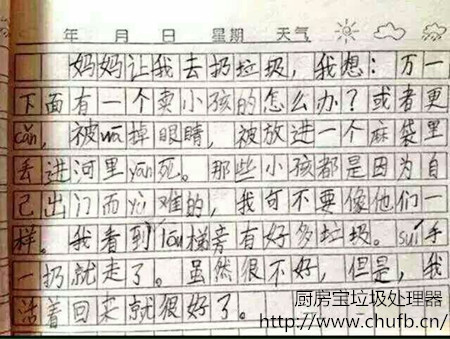 年 月 日 星期 天气
妈妈让我去扔垃圾，我想：万一
下面有一个卖小孩的怎么办？或者更
cǎn，被wā掉眼睛，被放进一个麻袋里
丢进河里yān死。那些小孩都是因为自
己出门而yù难的，我可不要像他们一
样。我看到lóu梯旁有好多垃圾。suí手
一扔就走了。虽然很不好，但是，我
活着回来就很好了。
厨房宝垃圾处理器
http://www.chufb.cn/